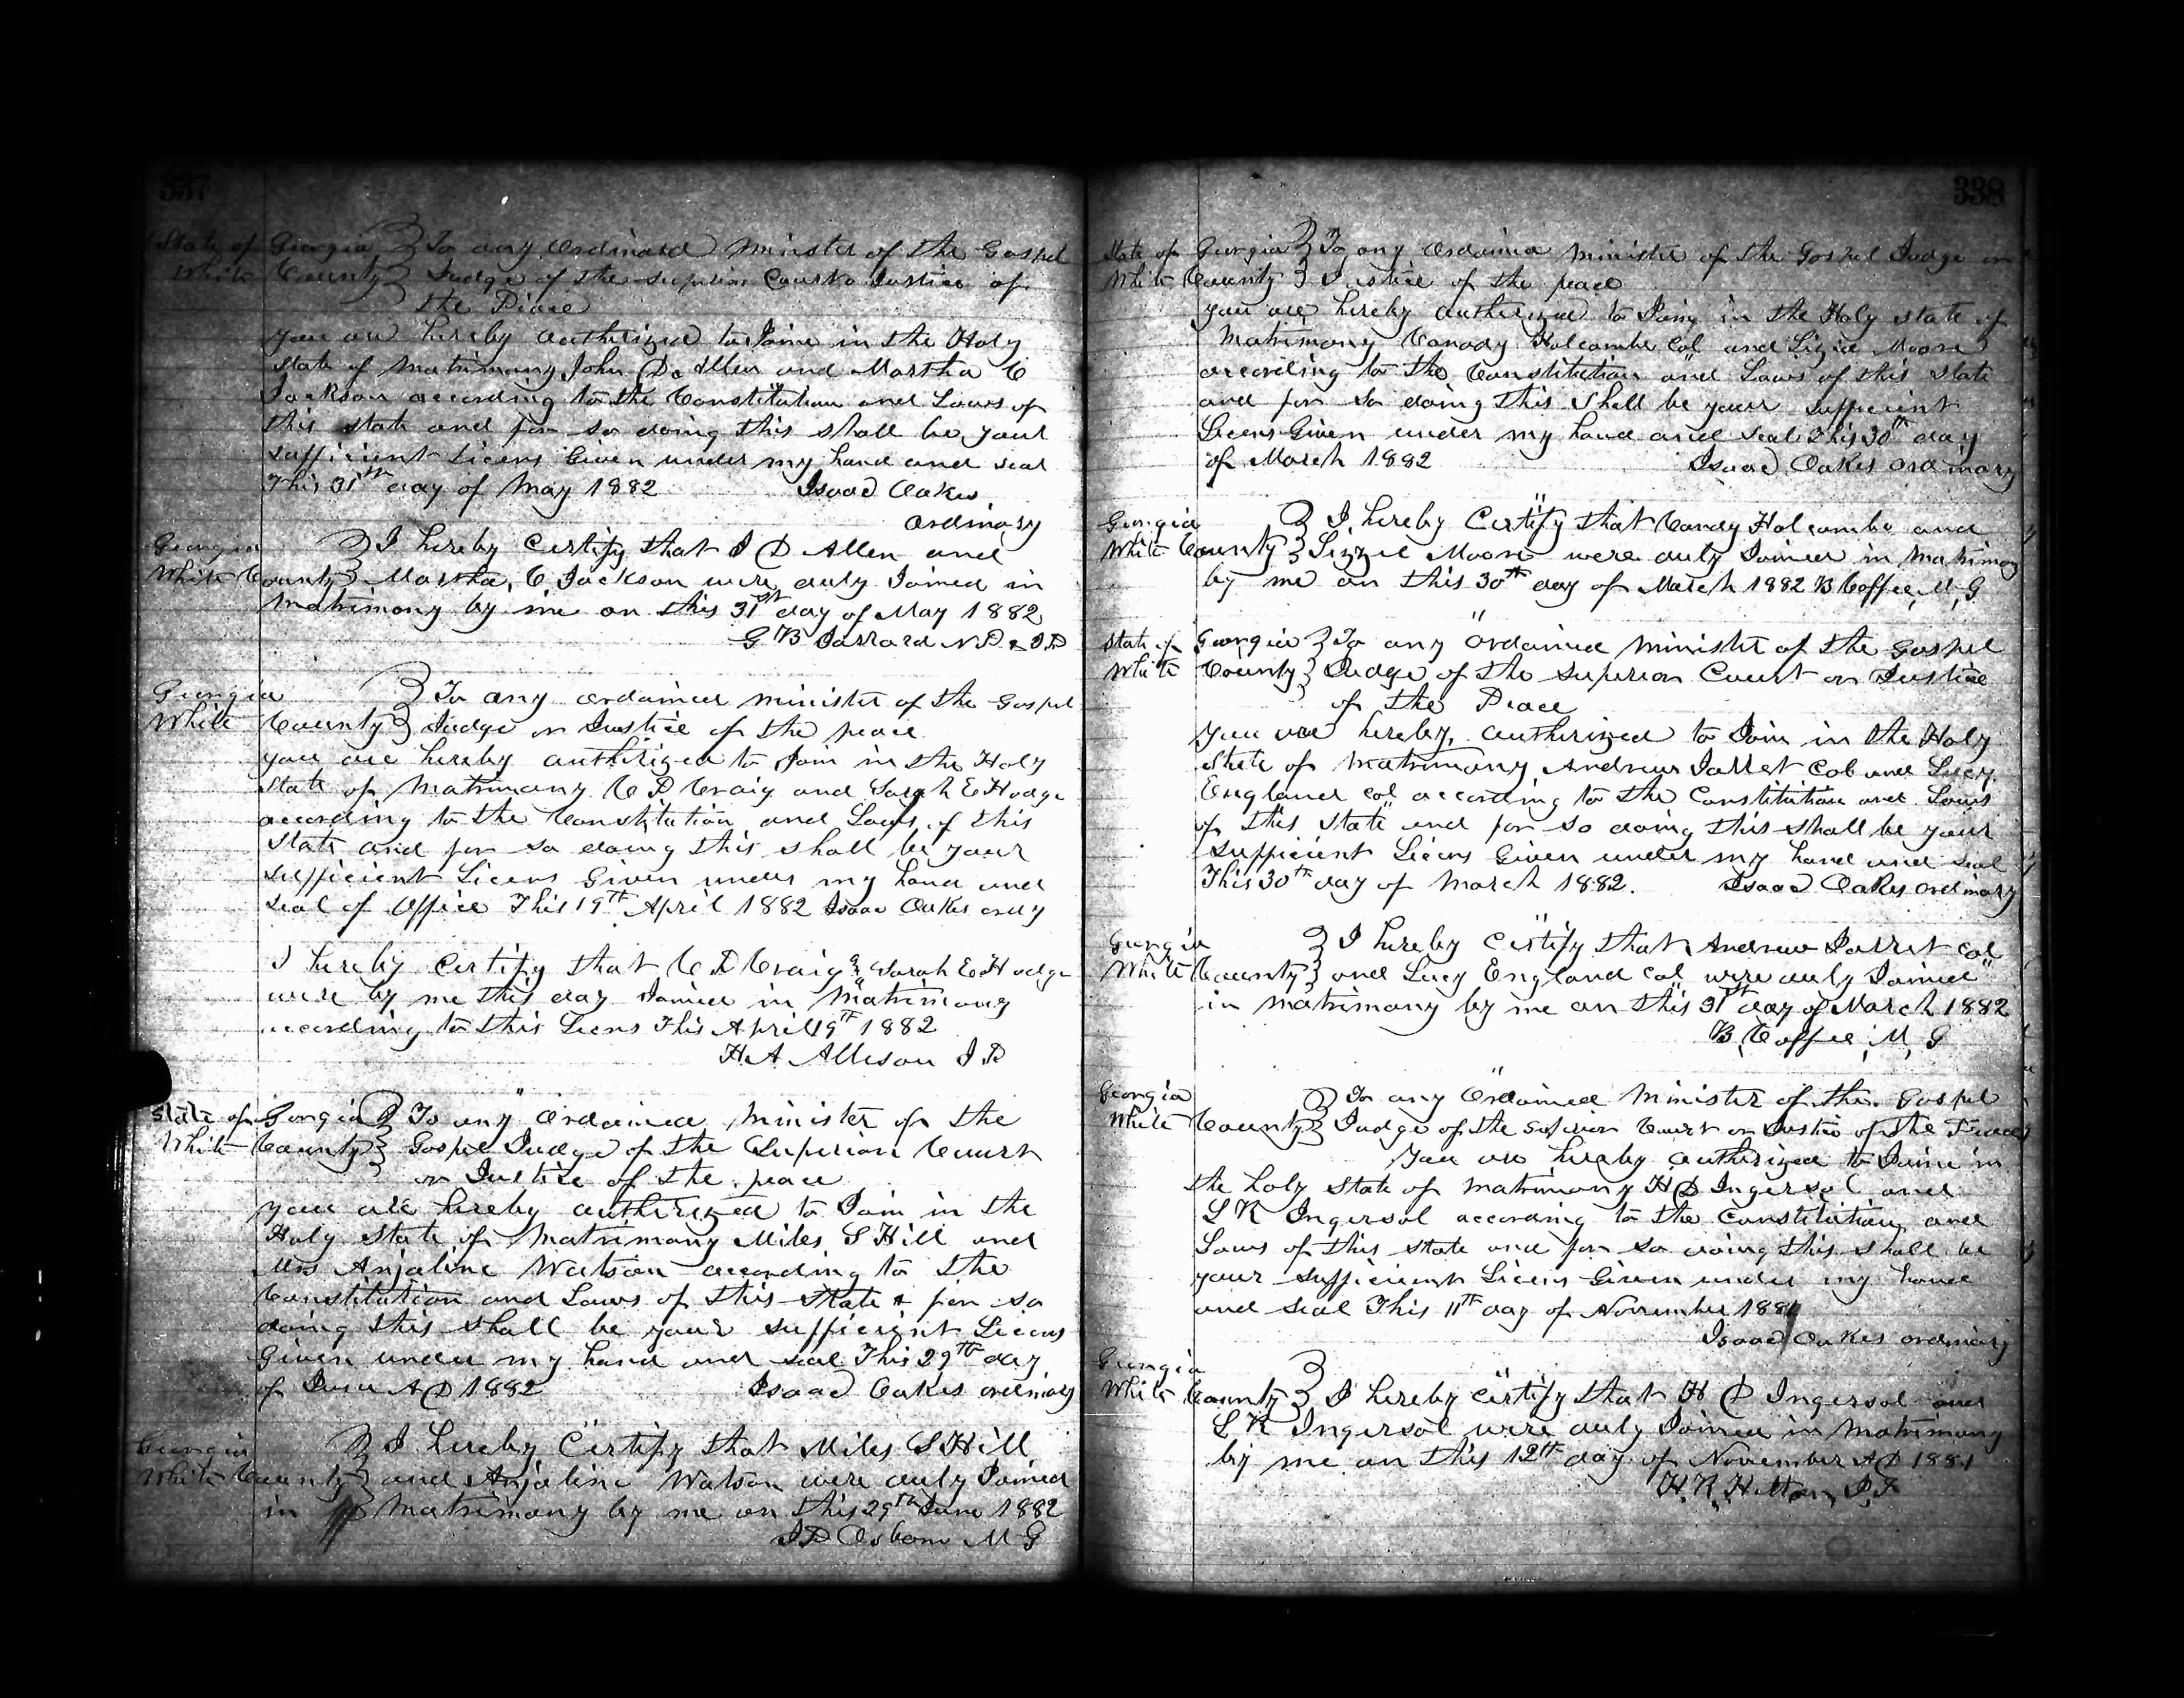 337
State of Georgia } To any Ordinard Minister of the Gospel
White County } Judge of the Superior Court o Justice of
the Peace
You are hereby authorized to Joine in the Holy
State of Matrimony John D. Allen and Martha C
Jackson according to the Constitution and Laws of
this state and for so doing this shall be your
sufficient Licens Given under my hand and seal
This 31st day of May 1882 Isaac Oakes
Ordinary
Georgia } I hereby Certify that J D Allen and
White County } Martha, C Jackson were duly Joined in
Matrimony by me on this 31st day of May 1882
G B Jarrard N P & J P
Georgia } To any ordained minister of the Gospel
White County } Judge or Justice of the peace
you are hereby authorized to Join in the Holy
State of Matrimony C P Craig and Sarah E Hodge
according to the Constitution and Laws of this
State and for so doing this shall be your
sufficient Licens Given under my hand and
seal of Office This 19th April 1882 Isaac Oakes ordy
I hereby Certify that C P Craig & Sarah E Hodge
were by me this day Joined in Matrimony
according to this Licens This April 19th 1882
H A Allison J P
State of Georgia } To any Ordained Minister of the
White County } Gospel Judge of the Superior Court
or Justice of the peace
you are hereby autherized to Join in the
Holy State of Matrimony Miles S Hill and
Mrs Anjaline Watson according to the
Constitution and Laws of this State & for so
doing this shall be your sufficient Licens
Given under my hand and seal This 29th day
of June A D 1882 Isaac Oakes ordinary
Georgia } I hereby Certify that Miles S Hill
White County } and Anjaline Watson were duly Joined
in Matrimony by me on this 29th June 1882
J P Osborn M G
338
State of Georgia } To any Ordained minister of the Gospel Judge or
White County } Justice of the peace
you are hereby autherized to Joing in the Holy state of
Matrimony Canady Holcombe Col and Lizzie Moore
according to the Constitution and Laws of this state
and for so doing this shall be your sufficient
Licens Given under my hand and seal This 30th day
of March 1882 Isaac Oakes Ordinary
Georgia } I hereby Certify that Candy Holcombe and
White County } Lizzie Moore were duly Joined in Matrimony
by me on this 30th day of March 1882 B Coffee, M, G
State of Georgia } To any Ordained minister of the Gospel
White County } Judge of the Superior Court or Justice
of the Peace
You are hereby, autherized to Join in the Holy
State of Matrimony, Andrew Jarret Col and Lucy
England col according to the Constitution and Laws
of this state and for so doing this shall be your
sufficient Licens Given under my hand and seal
This 30th day of March 1882. Isaac Oakes Ordinary
Georgia } I hereby Certify that Andrew Jarret col
White County } and Lucy England col were duly Joined
in matrimony by me on this 31st day of March 1882
B, Coffee, M, G
Georgia } To any Ordained Minister of the Gospel
White County } Judge of the Superior Court or Justice of the Peace
You are hereby autherized to Joine in
the holy State of Matrimony H D Ingersol and
L K Ingersol according to the Constitution and
Laws of this state and for so doing this shall be
your sufficient Licens Given under my hand
and seal This 11th day of November 1881
Isaac Oakes ordinary
Georgia
White County } I hereby certify that H D Ingersol and
L K Ingersol were duly Joined in Matrimony
by me on this 12th day of November A D 1881
H. K. Helton, J. P.